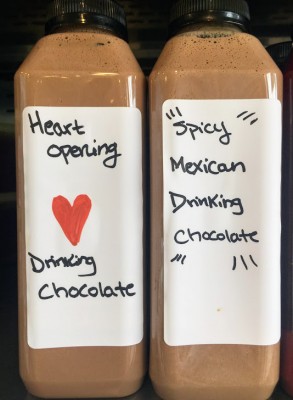 Heart
opening
Drinking
Chocolate
"Spicy
Mexican
Drinking
Chocolate